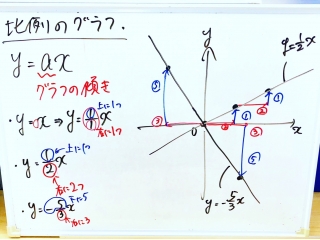 比例のグラフ.
y = ax
グラフの傾き
・y = x ⇒ y = 1/1 x
上に1つ
右に1つ
・y = 1/2 x
上に1つ
右に2つ
・y = -5/3 x
上に5
右に3
y
y = 1/2 x
⑤
③
①
②
①
②
0
x
③
⑤
y = -5/3 x